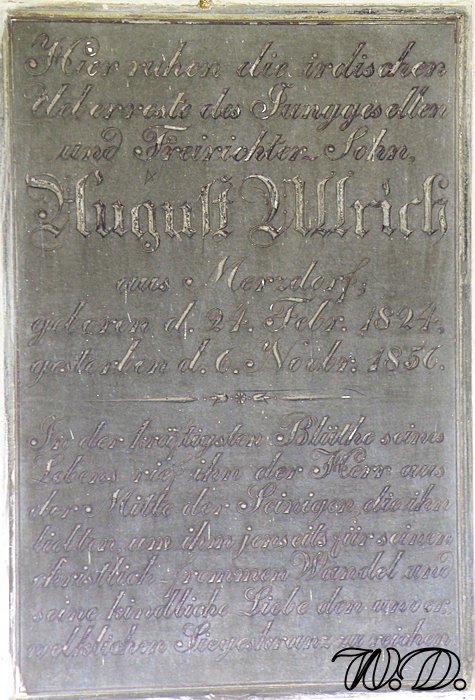 Hier ruhen die irdischen
Ueberreste des Junggesellen
und Freirichter-Sohn,
August Ullrich
aus Merzdorf,
geboren d. 24. Febr. 1824,
gestorben d. 6. Novbr. 1856.
In der kräftigsten Blüthe seines
Lebens rief ihn der Herr aus
der Mitte der Seinigen, die ihn
liebten, um ihm jenseits für seinen
christlich-frommen Wandel und
seine kindliche Liebe den unver
welklichen Siegeskranz zu reichen
W.D.